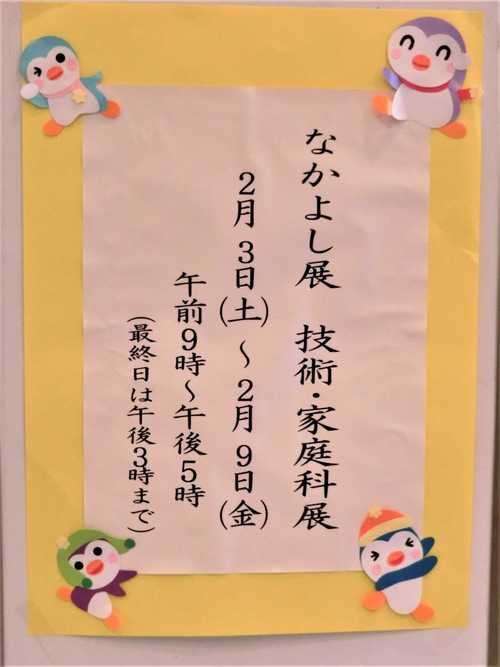 なかよし展　技術・家庭科展
2月3日(土)～2月9日(金)
午前9時～午後5時
(最終日は午後3時まで)